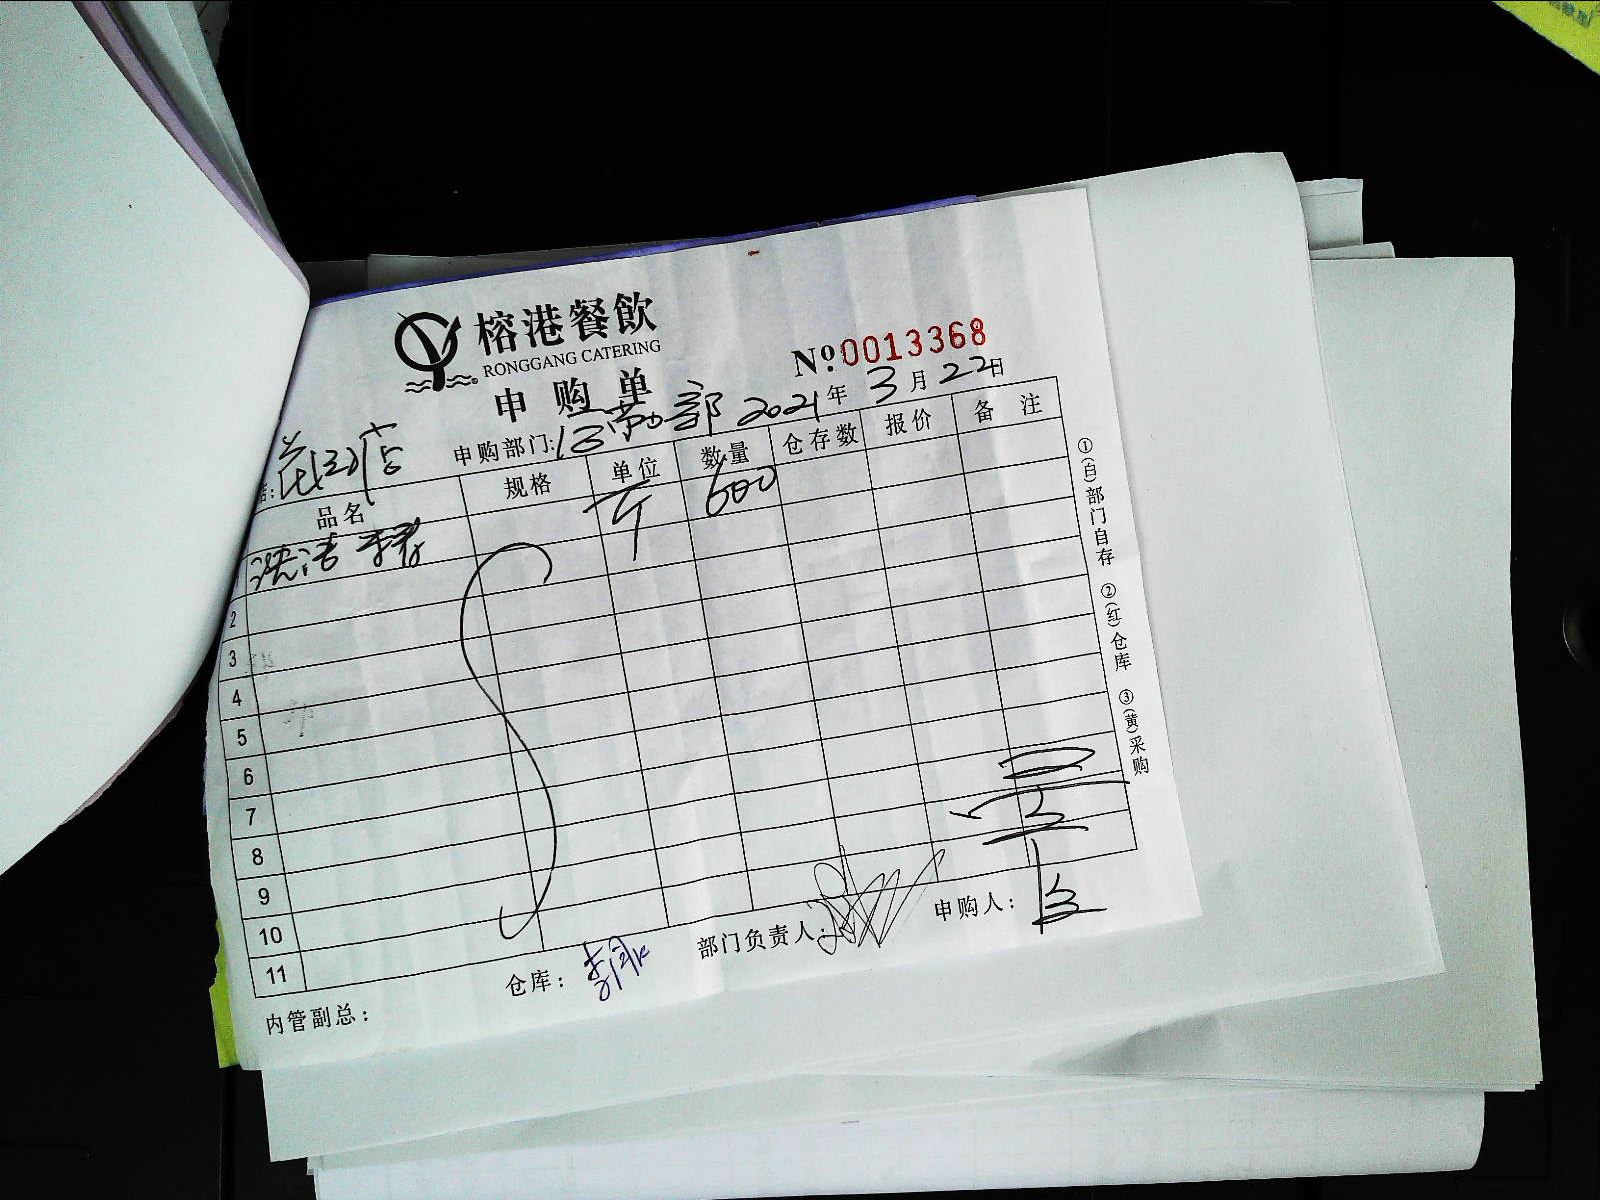 榕港餐飲
RONGGANG CATERING
№:0013368
申购单
申购部门: 2021年3月22日
品名 规格 单位 数量 仓存数 报价 备注
斤 600
2
3
4
5
6
7
8
9
10
11
内管副总: 仓库: 部门负责人: 申购人:
①(白)部门自存 ②(红)仓库 ③(黄)采购